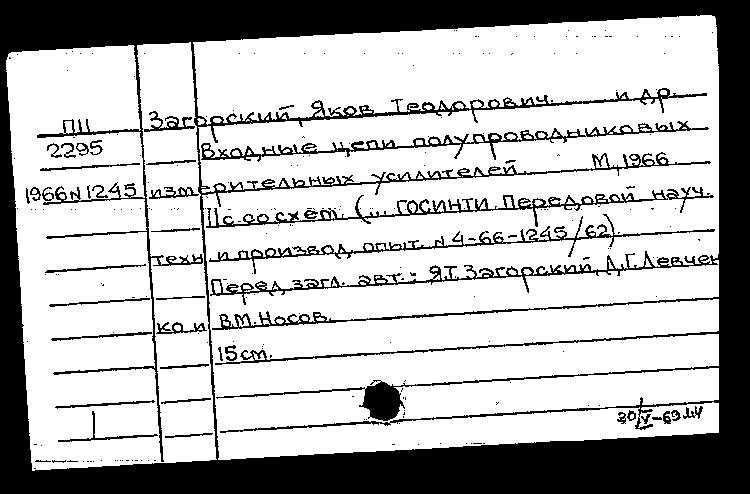 П11 Загорский, Яков Теодорович. и др.
2295 Входные цепи полупроводниковых
1966 N 1245 измерительных усилителей. М, 1966.
11с со схем. (... ГОСИНТИ. Передовой науч.
техн и производ. опыт. N 4-66-1245/62).
Перед загл. авт.: Я.Т. Загорский, Д.Г. Левчен
ко и В.М. Носов.
15 см.
30/V-69